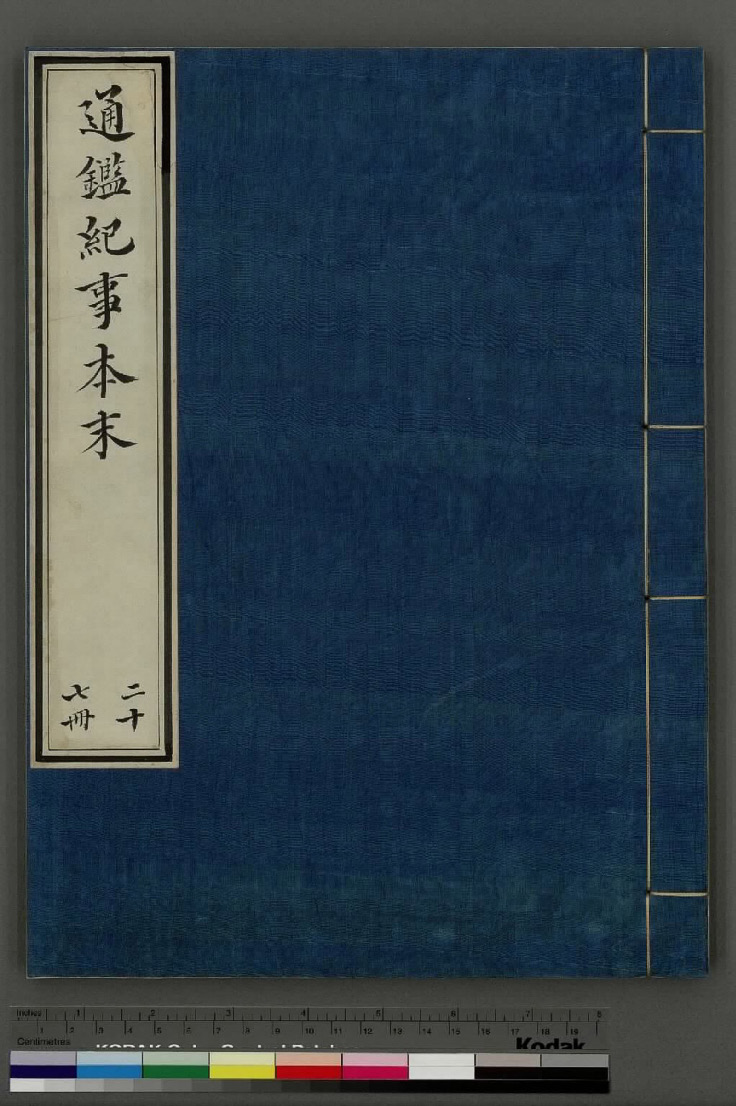 通鑑紀事本末
二十
七冊
Inches 1 2 3 4 5 6 7 8
1 2 3 4 5 6 7 8 9 10 11 12 13 14 15 16 17 18 19
Centimetres
Kodak